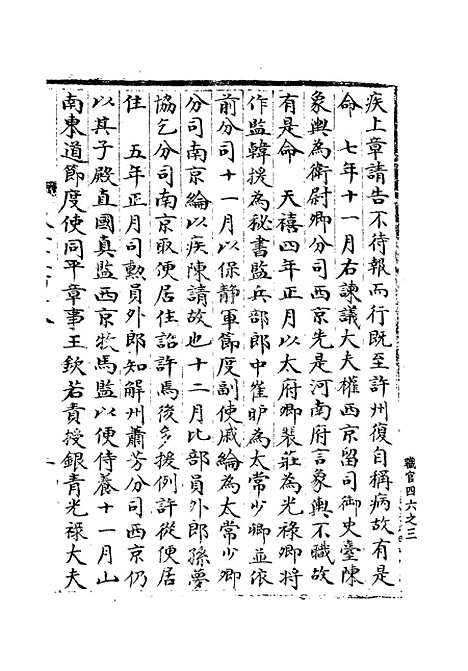 疾上章請告不待報而行既至許州復自稱病故有是
命　七年十一月右諫議大夫權西京留司御史臺陳
象輿為衛尉卿分司西京先是河南府言象輿不職故
有是命　天禧四年正月以太府卿裴莊為光祿卿將
作監韓援為秘書監兵部郎中崔昈為太常少卿並依
前分司十一月以保静軍節度副使戚綸為太常少卿
分司南京綸以疾陳請故也十二月比部員外郎孫夢
協乞分司南京取便居住詔許焉後多援例許從便居
住　五年正月司勳員外郎知解州蕭芳分司西京仍
以其子殿直國真監西京牧馬監以便侍養十一月山
南東道節度使同平章事王欽若責授銀青光祿大夫
職官四六之三